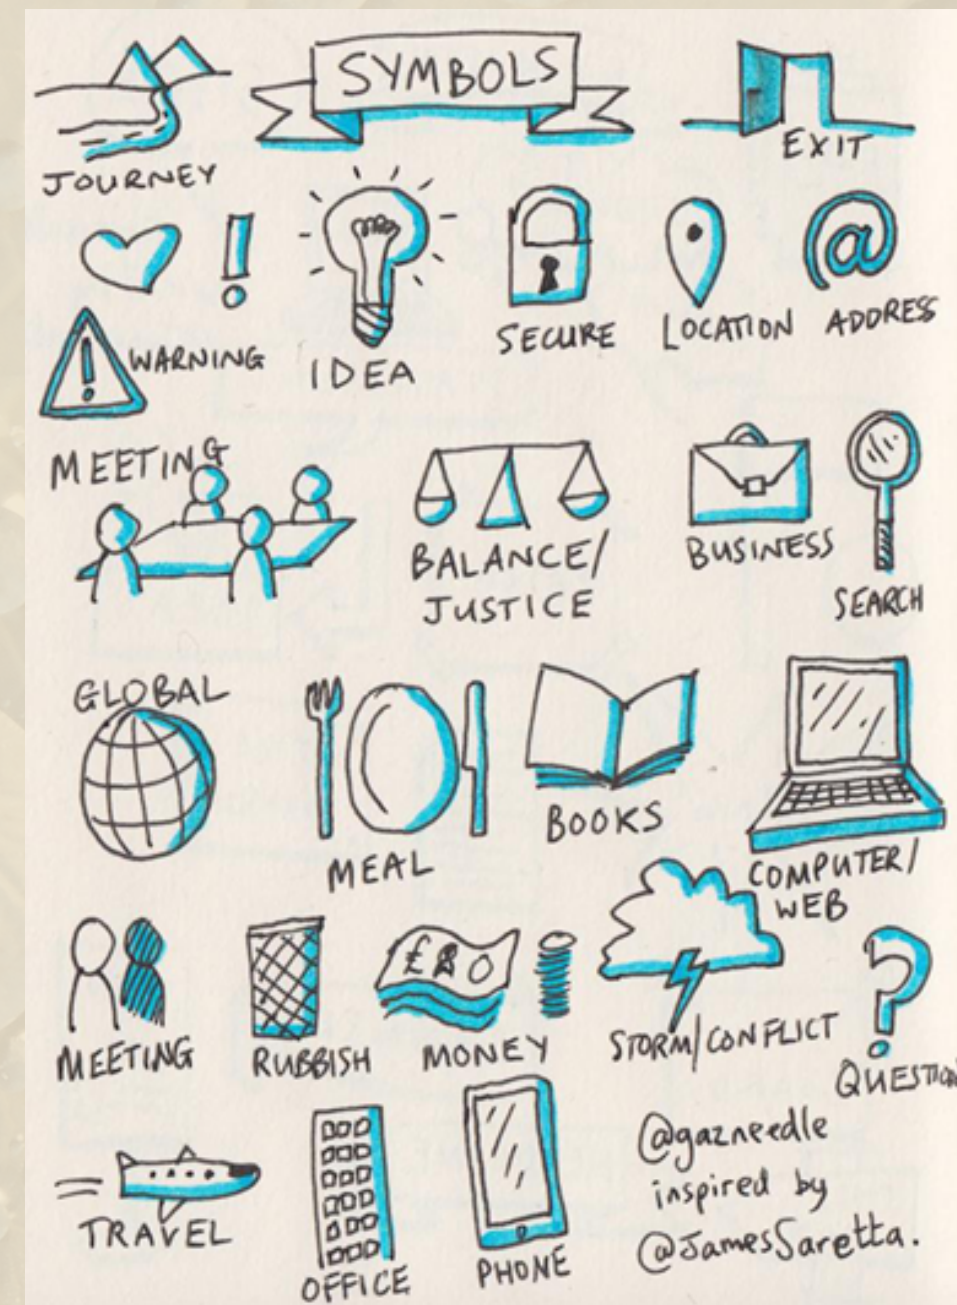 SYMBOLS
JOURNEY
EXIT
!
@
! WARNING
IDEA
SECURE
LOCATION
ADDRESS
MEETING
BALANCE/
JUSTICE
BUSINESS
SEARCH
GLOBAL
MEAL
BOOKS
COMPUTER/
WEB
£
MEETING
RUBBISH
MONEY
STORM/CONFLICT
?
QUESTION
TRAVEL
OFFICE
PHONE
@gazneedle
inspired by
@JamesSaretta.